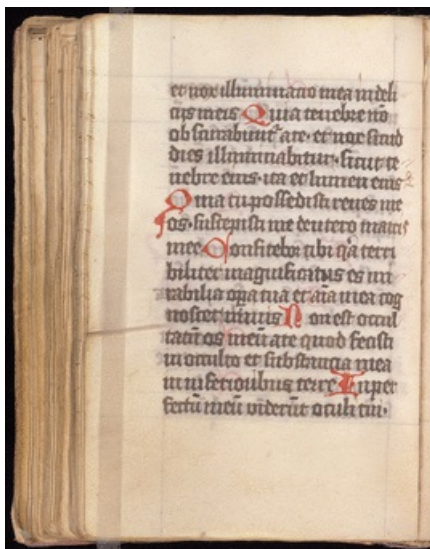 et nox illuminatio mea in deli
cijs meis Quia tenebre nō
obscurabunt᷑ a te · et nox sicud
dies illuminabitur · sicut te
nebre eius · ita et lumen eius
Quia tu possedisti renes me
os · suscepisti me de utero matris
mee Confitebor tibi qͣa terri
biliter magnificatus es mi
rabilia oꝑa tua et aīa mea cog
noscet nimis Non est occul
tatū os meū a te quod fecisti
in occulto et substancia mea
in inferioribus terre Inper
fectū meū viderūt oculi tui ·